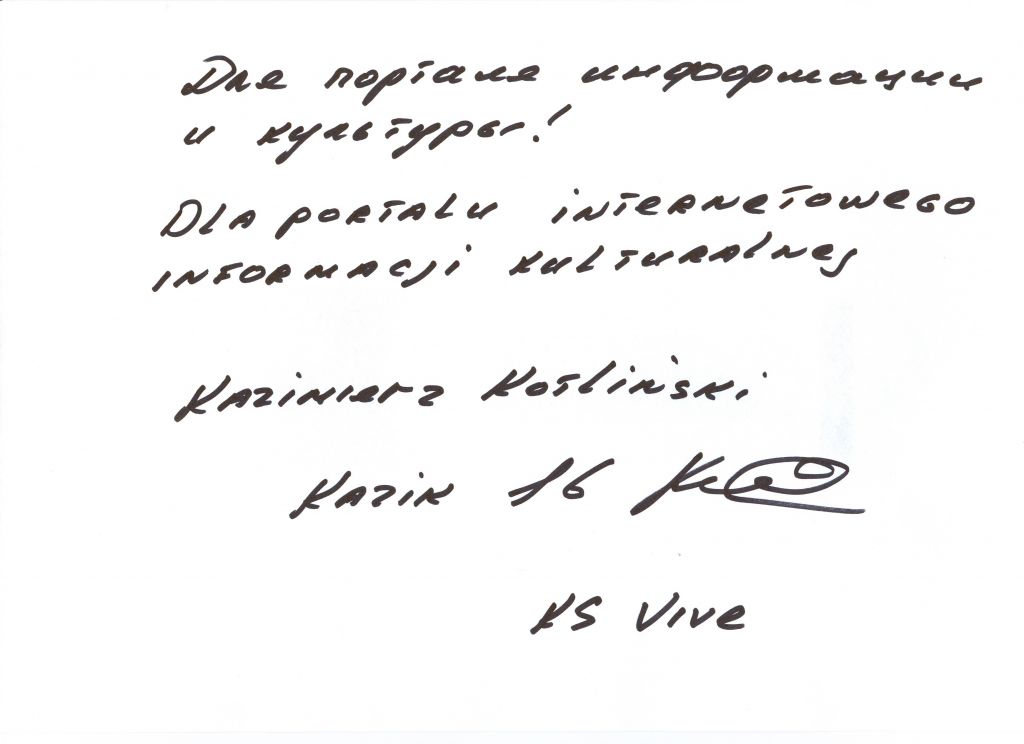 Для портала информации
и культуры!
DLA PORTALU INTERNETOWEGO
INFORMACJI KULTURALNEJ
KAZIMIERZ KOTLIŃSKI
KAZIK 16
KS VIVE